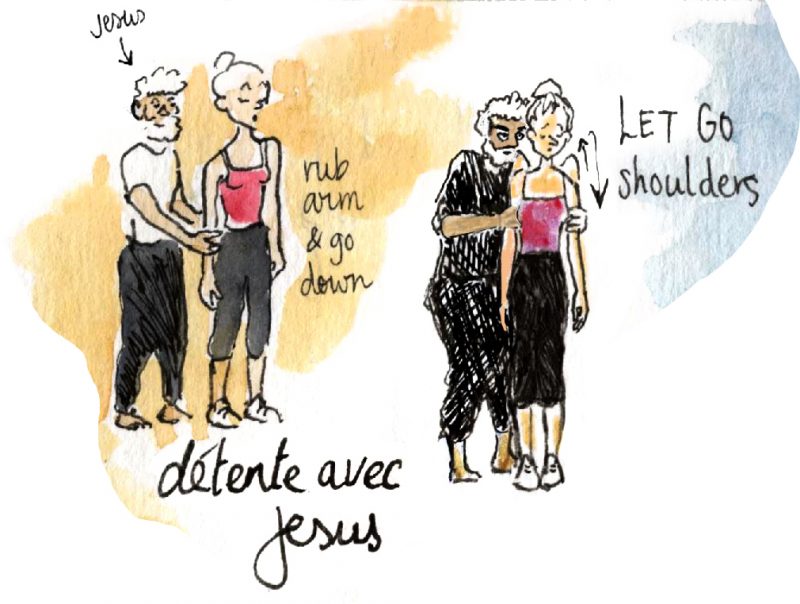 Jesus
rub
arm
& go
down
LET GO
shoulders
détente avec
Jesus